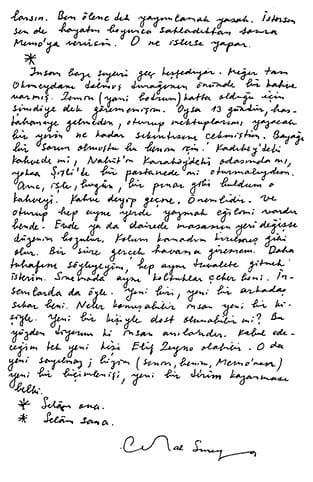 lansın. Ben ölene dek yayımlamak yasak. İstersen
sen de hayatın boyunca sakladıktan sonra
Memo'ya verirsin. O ne isterse yapar.
*
İnsan bazı şeyleri geç keşfediyor. Meğer tam
Okmeydanı dolmuş durağının önünde bir kahve
varmış. Zemin (yani bodrum) katta olduğu için
şimdiye dek görememişim. Oysa 13 gündür, has-
taneye gelmeden, oturup mektuplarını yazacak
bir yerin ne kadar sıkıntısını çekmiştim. Bayağı
bir sorun olmuştu bu benim için. Kadıköy'deki
kahvede mi, Nahit'in Karaköy'deki odasında mı,
yoksa Şişli'de bir pastanede mi oturmalıydım.
Ama, işte, bugün, bir pınar gibi buldum o
kahveyi. Kahve deyip geçme. Önemlidir. Ve
oturup hep aynı yerde yazmak eğilimi vardır
bende. Evde ya da dairede masamın yeri değişse
düzenim bozulur. Kolum kanadım kırılmış gibi
olur. Bir süre gerçek havama giremem. Daha
tuhafını söyleyeyim, hep aynı tuvalete gitmek
isterim. Sinemada aynı koltuklar çeker beni. İn-
sanlarda da öyle. Yeni biri, yeni bir arkadaş
sıkar beni. Neler konuşabilir insan yeni bir ki-
şiyle. Yeni bir kişiyle dost olunabilir mi? Bu
yüzden diyorum ki insan anılarıdır. Kabul ede-
ceğim tek yeni kişi Elif Zeyno olabilir. O da
yeni sayılmaz; bizim (senin, benim, Memo'nun)
yeni bir biçimlenişi, yeni bir dirim kazanması
belki.
* Selâm ona.
* Selâm sana.
Cemal Süreya